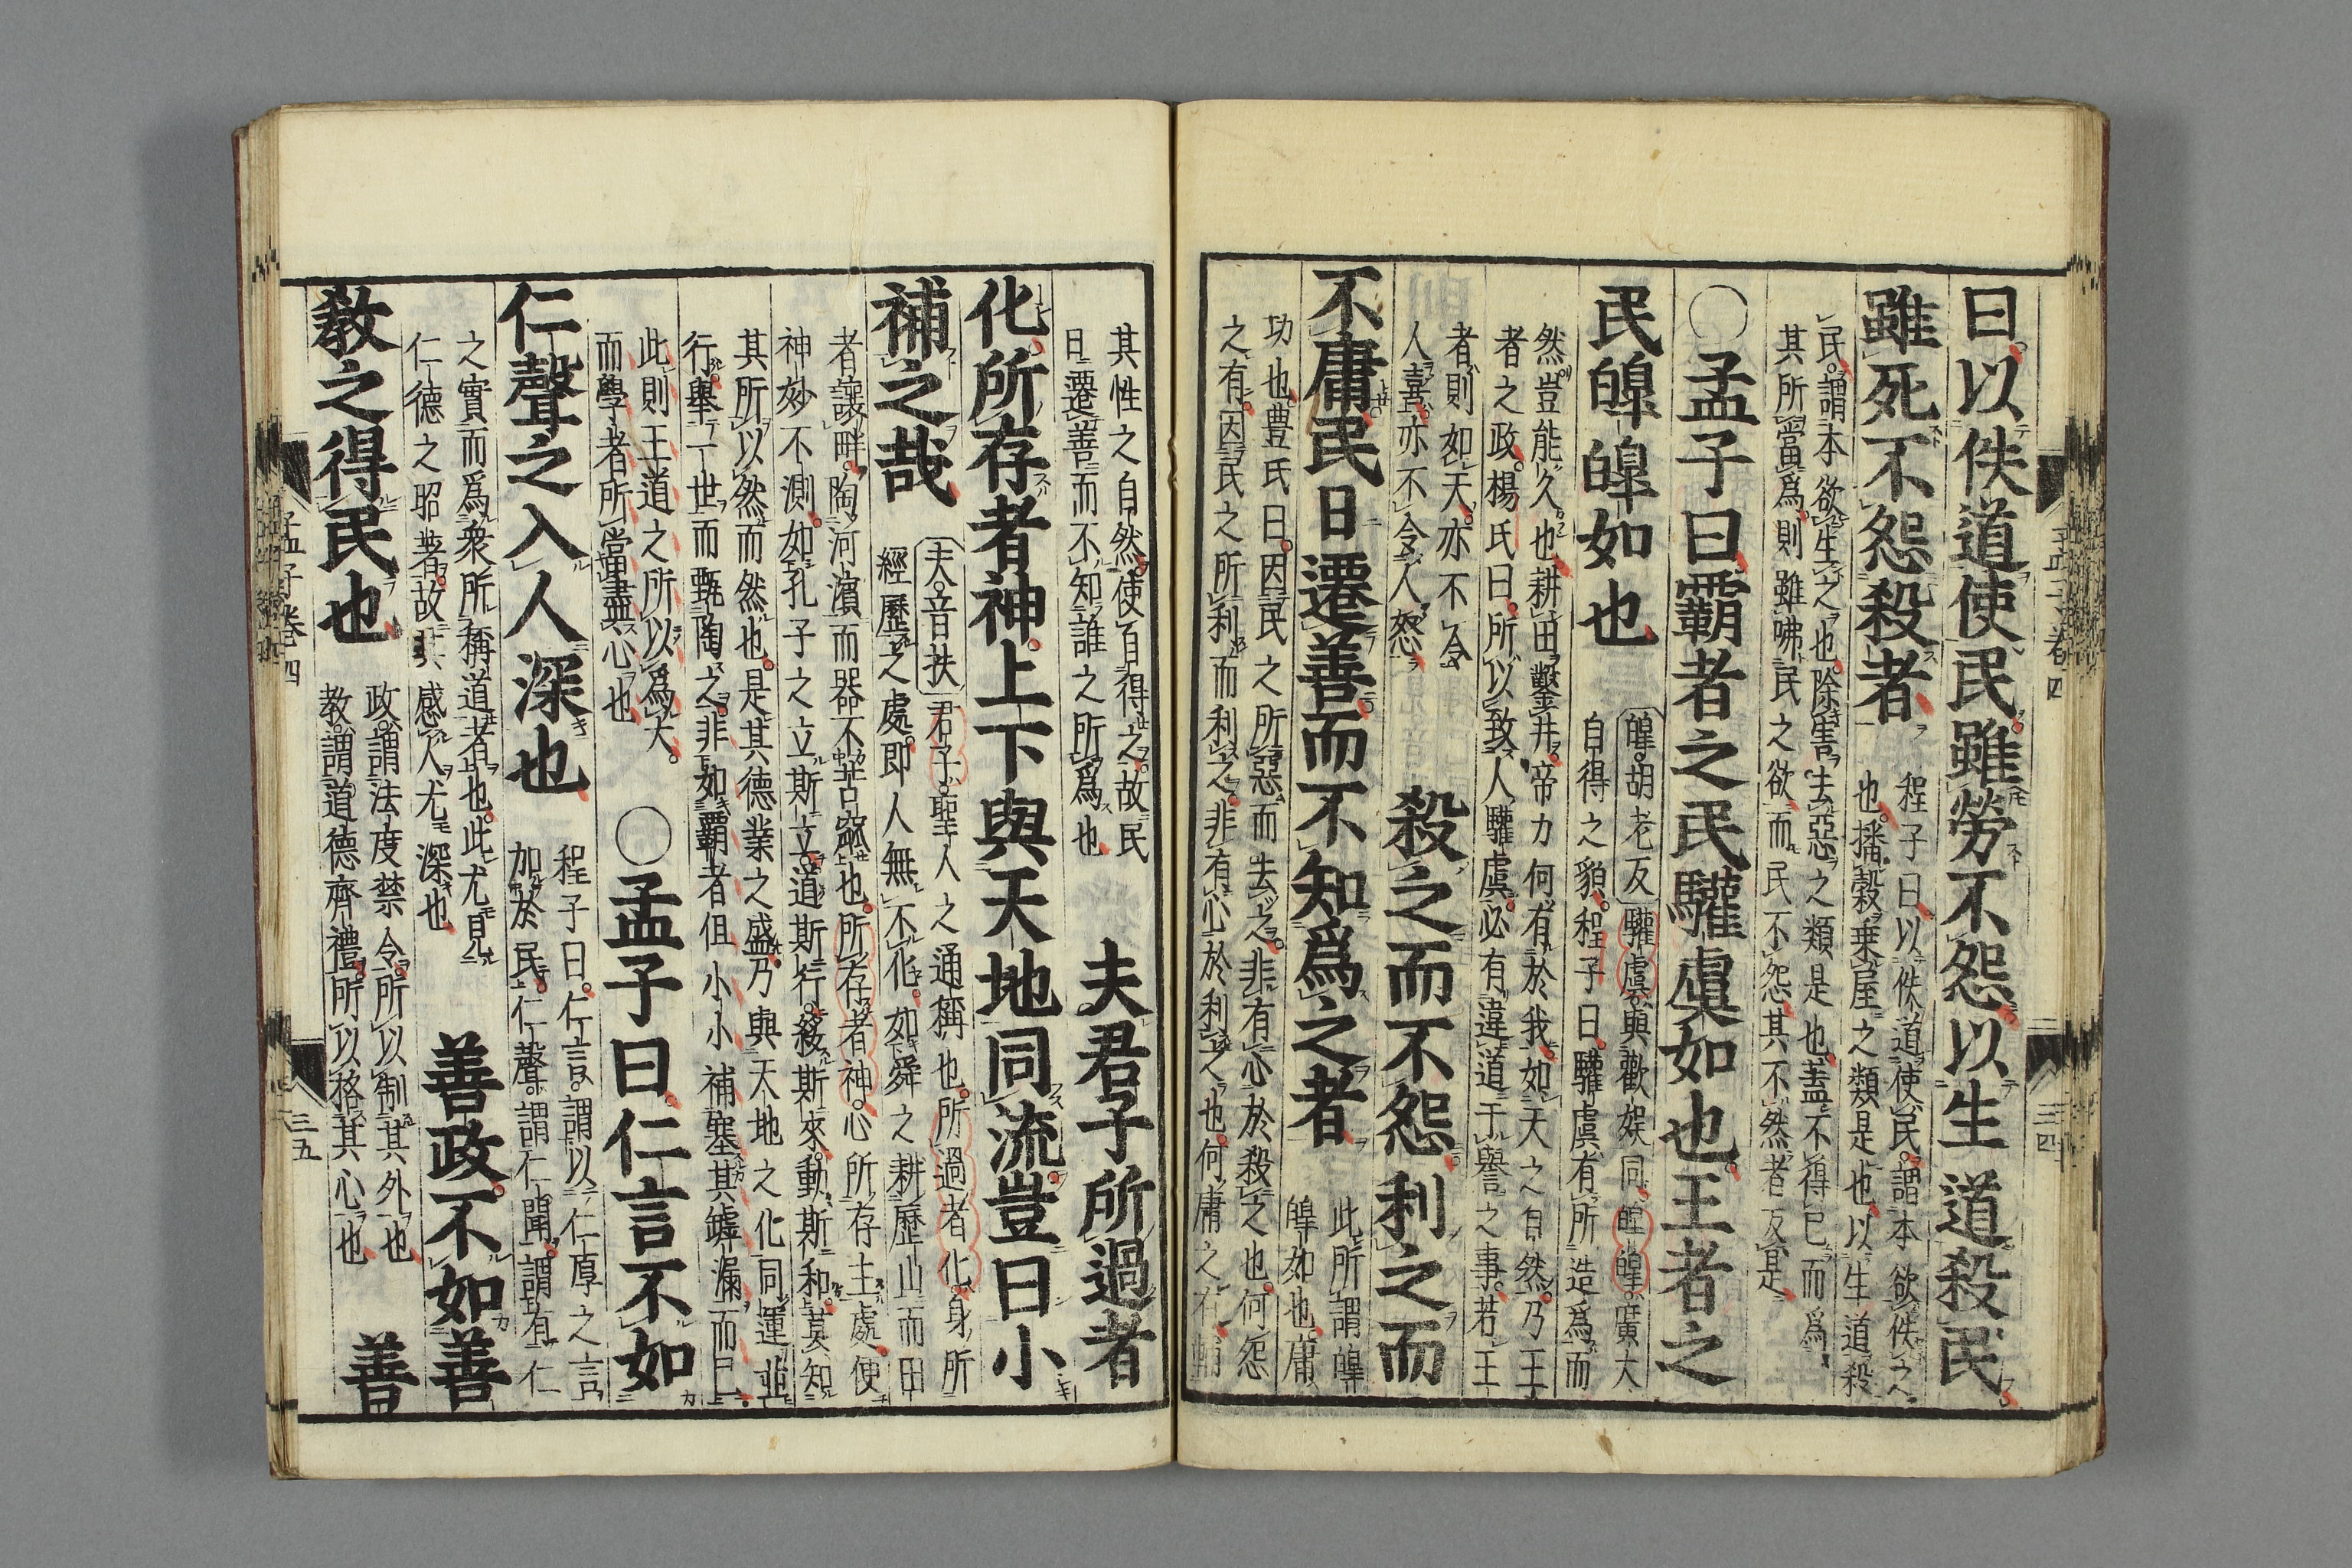 孟子卷四 三四
曰以佚道使民雖勞不怨以生道殺民
雖死不怨殺者
程子曰以佚道使民謂本欲佚之
也播穀乘屋之類是也以生道殺
民謂本欲生之也除害去惡之類是也蓋不得已而爲
其所當爲則雖咈民之欲而民不怨其不然者反是
○孟子曰霸者之民驩虞如也王者之
民皥皥如也
皥胡老反驩虞與歡娛同皥皥廣大
自得之貌程子曰驩虞有所造爲而
然豈能久也耕田鑿井帝力何有於我如天之自然乃王
者之政楊氏曰所以致人驩虞必有違道干譽之事若王
者則如天亦不令
人喜亦不令人怒
殺之而不怨利之而
不庸民日遷善而不知爲之者
此所謂皥
皥如也庸
功也豊氏曰因民之所惡而去之非有心於殺之也何怨
之有因民之所利而利之非有心於利之也何庸之有輔
其性之自然使自得之故民
日遷善而不知誰之所爲也
夫君子所過者
化所存者神上下與天地同流豈曰小
補之哉
夫音扶君子聖人之通稱也所過者化身所
經歷之處即人無不化如舜之耕歷山而田
者讓畔陶河濱而器不苦窳也所存者神心所存主處便
神妙不測如孔子之立斯立道斯行綏斯來動斯和莫知
其所以然而然也是其德業之盛乃與天地之化同運並
行舉一世而甄陶之非如霸者但小小補塞其罅漏而已
此則王道之所以爲大
而學者所當盡心也
○孟子曰仁言不如
仁聲之入人深也
程子曰仁言謂以仁厚之言
加於民仁聲謂仁聞謂有仁
之實而爲衆所稱道者也此尤見
仁德之昭著故其感人尤深也
善政不如善
教之得民也
政謂法度禁令所以制其外也
教謂道德齊禮所以格其心也
善
孟子卷四 三五